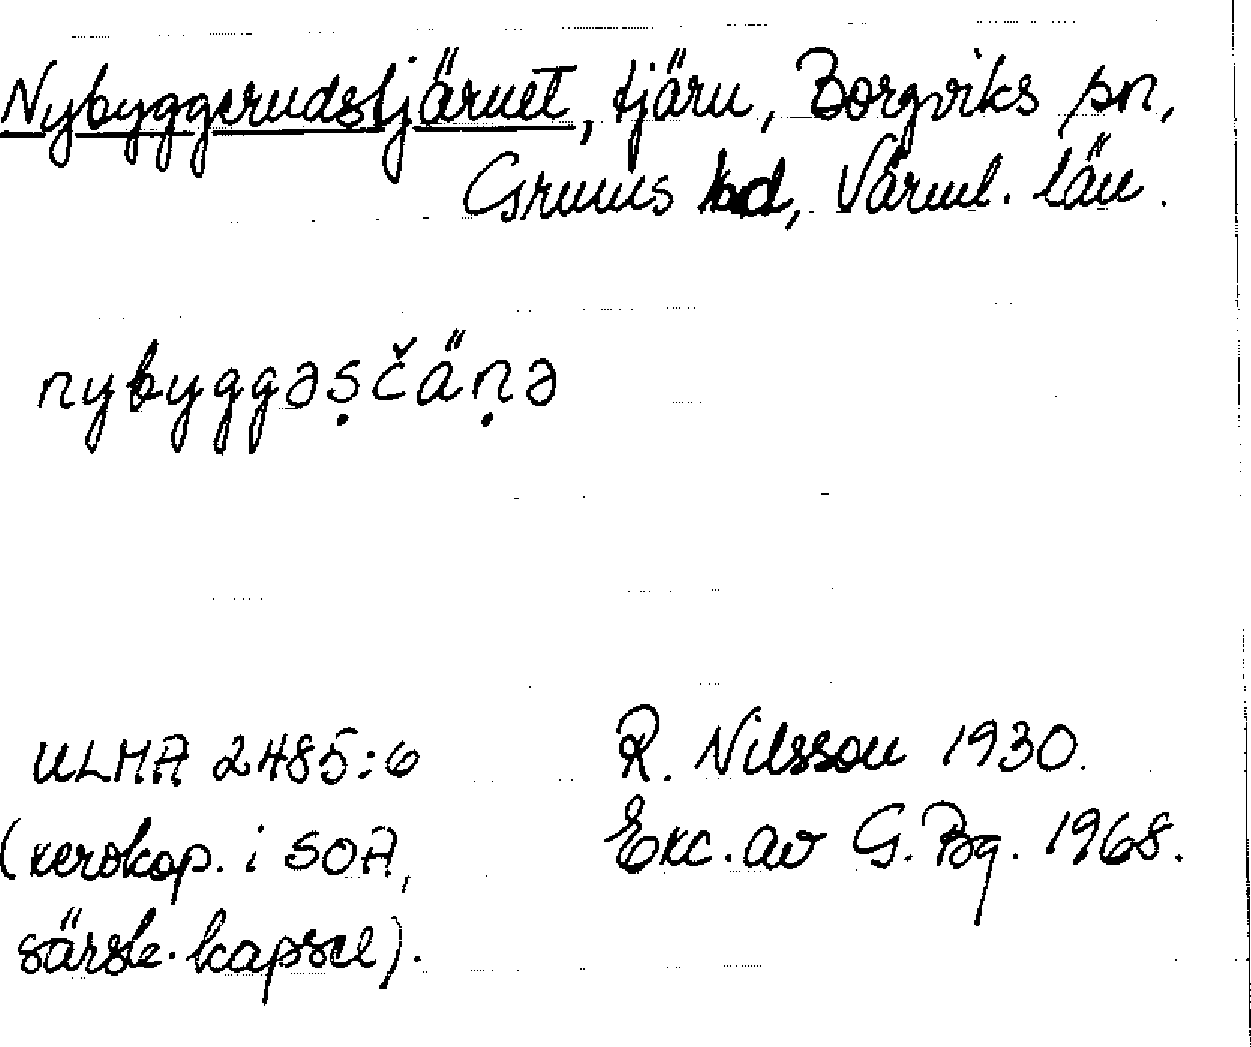 Nybyggerudstjärnet, tjärn, Borgviks sn,
Grums hd, Värml. län.
nybyggəṣčäṇə
ULMA 2485:6
R. Nilsson 1930.
(xerokop. i SOA,
Exc. av G. Bg. 1968.
särsk. kapsel).